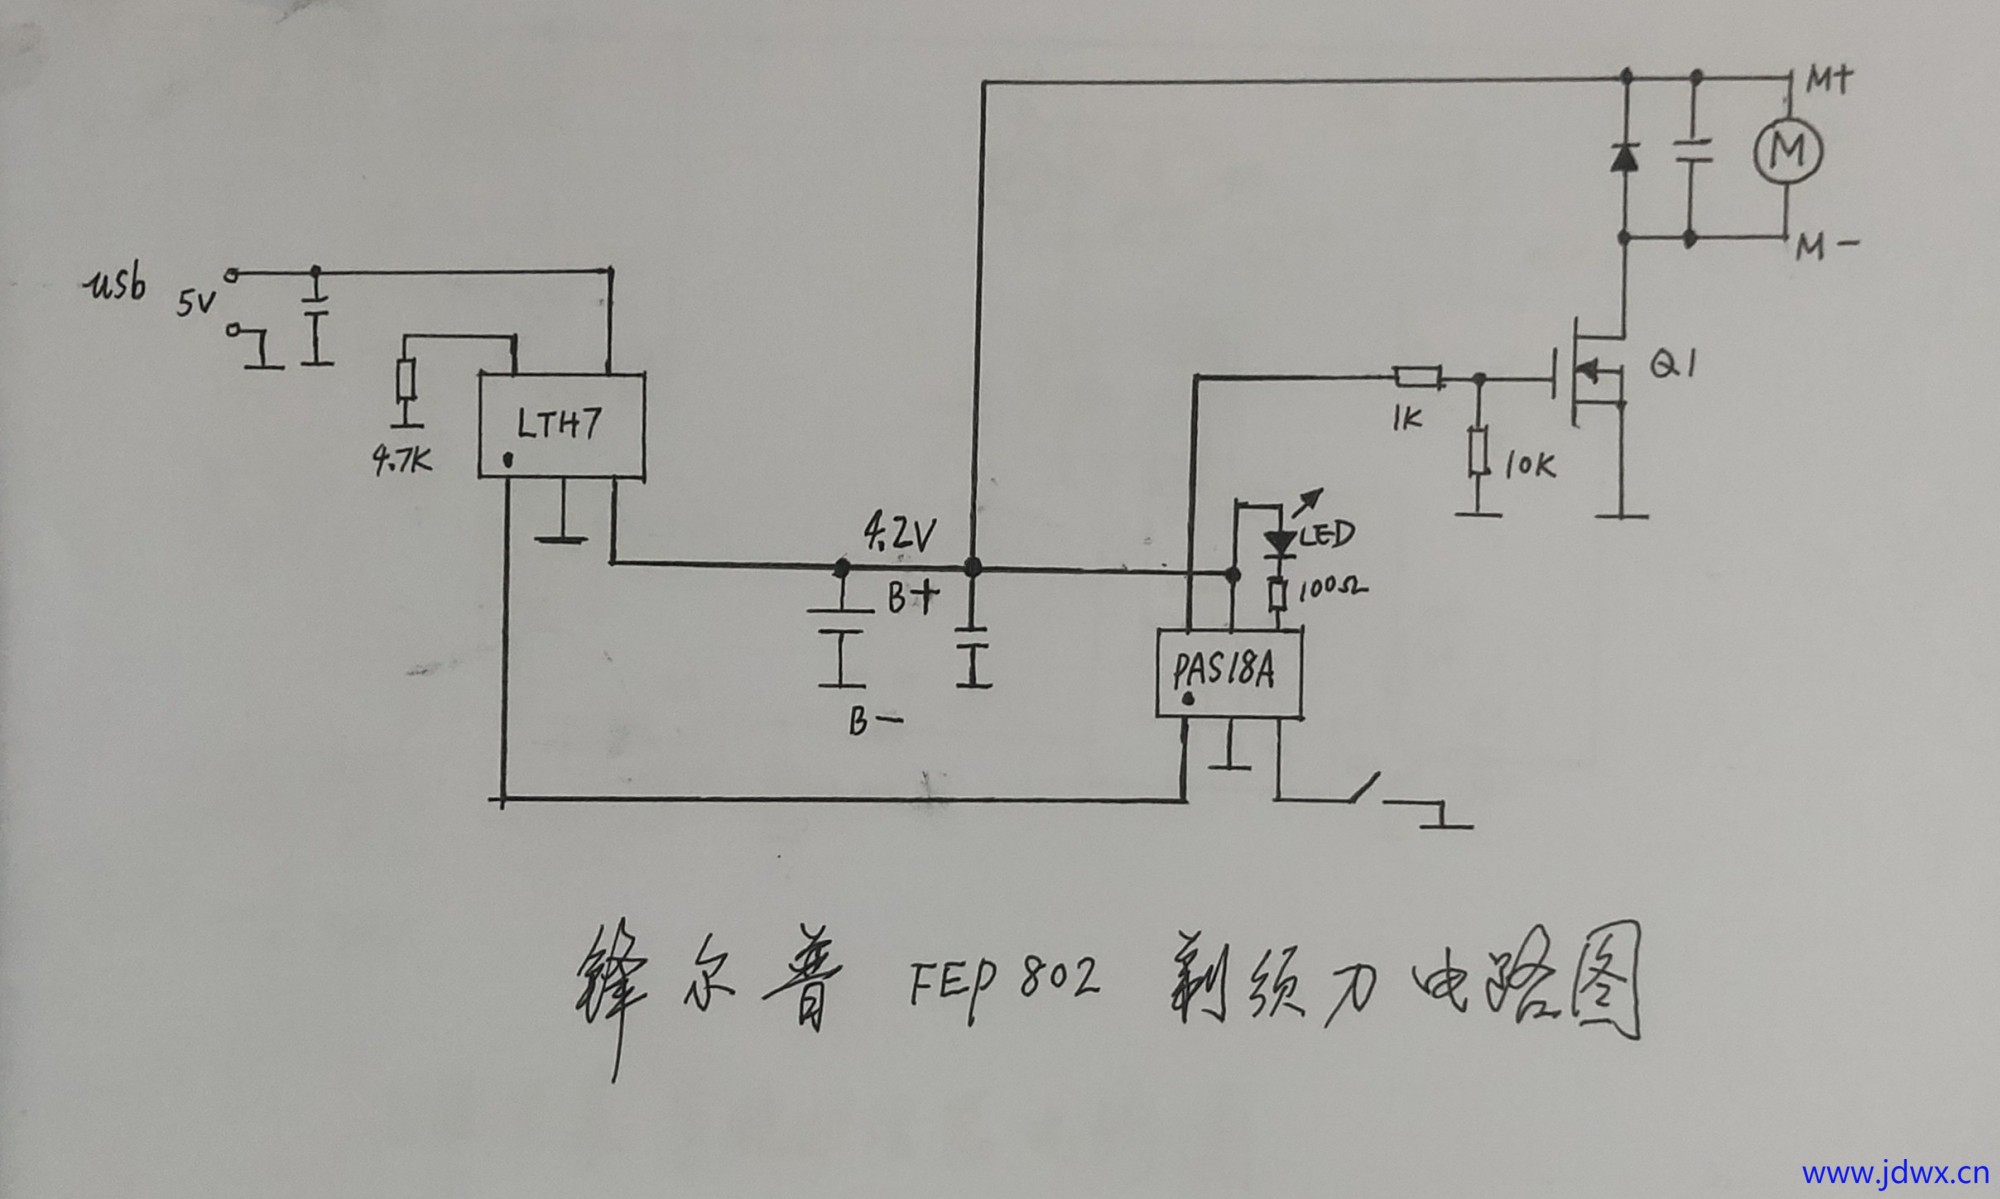 M+
M
M-
usb
5V
Q1
LTH7
1K
4.7K
10K
4.2V
LED
B+
100Ω
PAS18A
B-
锋尔普 FEP802 剃须刀电路图
www.jdwx.cn